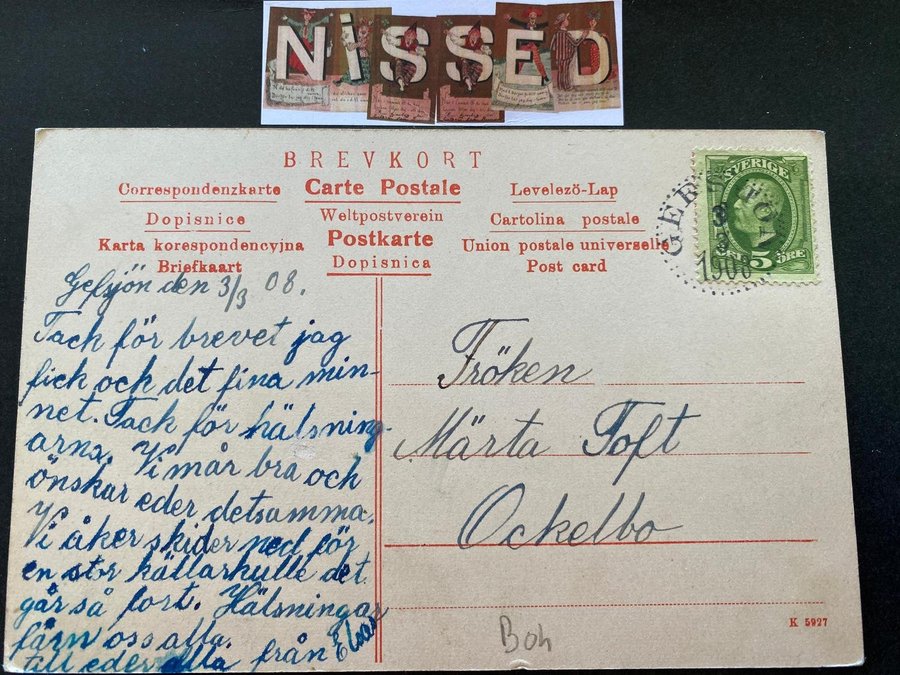 NISSED
BREVKORT
Correspondenzkarte Carte Postale Levelező-Lap
Dopisnice Weltpostverein Cartolina postale
Karta korespondencyjna Postkarte Union postale universelle
Briefkaart Dopisnica Post card
SVERIGE
5 ÖRE
Gefsjön den 3/3 08.
Tack för brevet jag
fick och det fina min-
net. Tack för hälsning-
arna. Vi mår bra och
önskar eder detsamma.
Vi åker skider ned för
en stor källarkulle det
går så fort. Hälsningar
färn oss alla.
till eder alla från
Fröken
Märta Toft
Ockelbo
Boh
K 5927